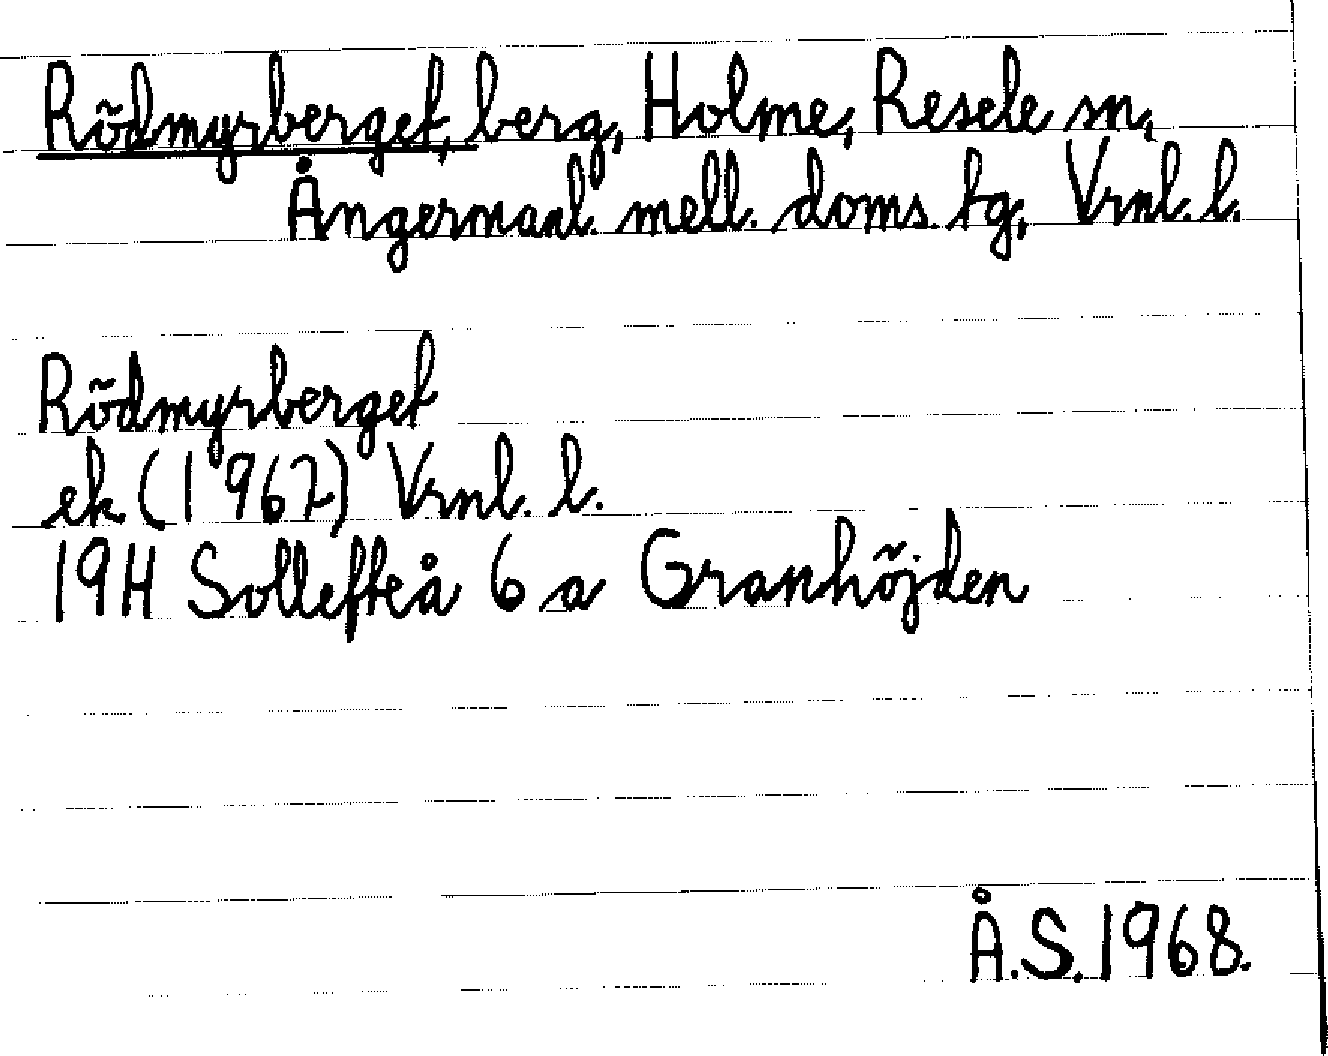 Rödmyrberget, berg, Holme, Resele sn,
Ångermanl. mell. doms. tg, Vrnl. l.
Rödmyrberget
ek (1967) Vrnl. l.
19H Sollefteå 6 a Granhöjden
Å.S. 1968.